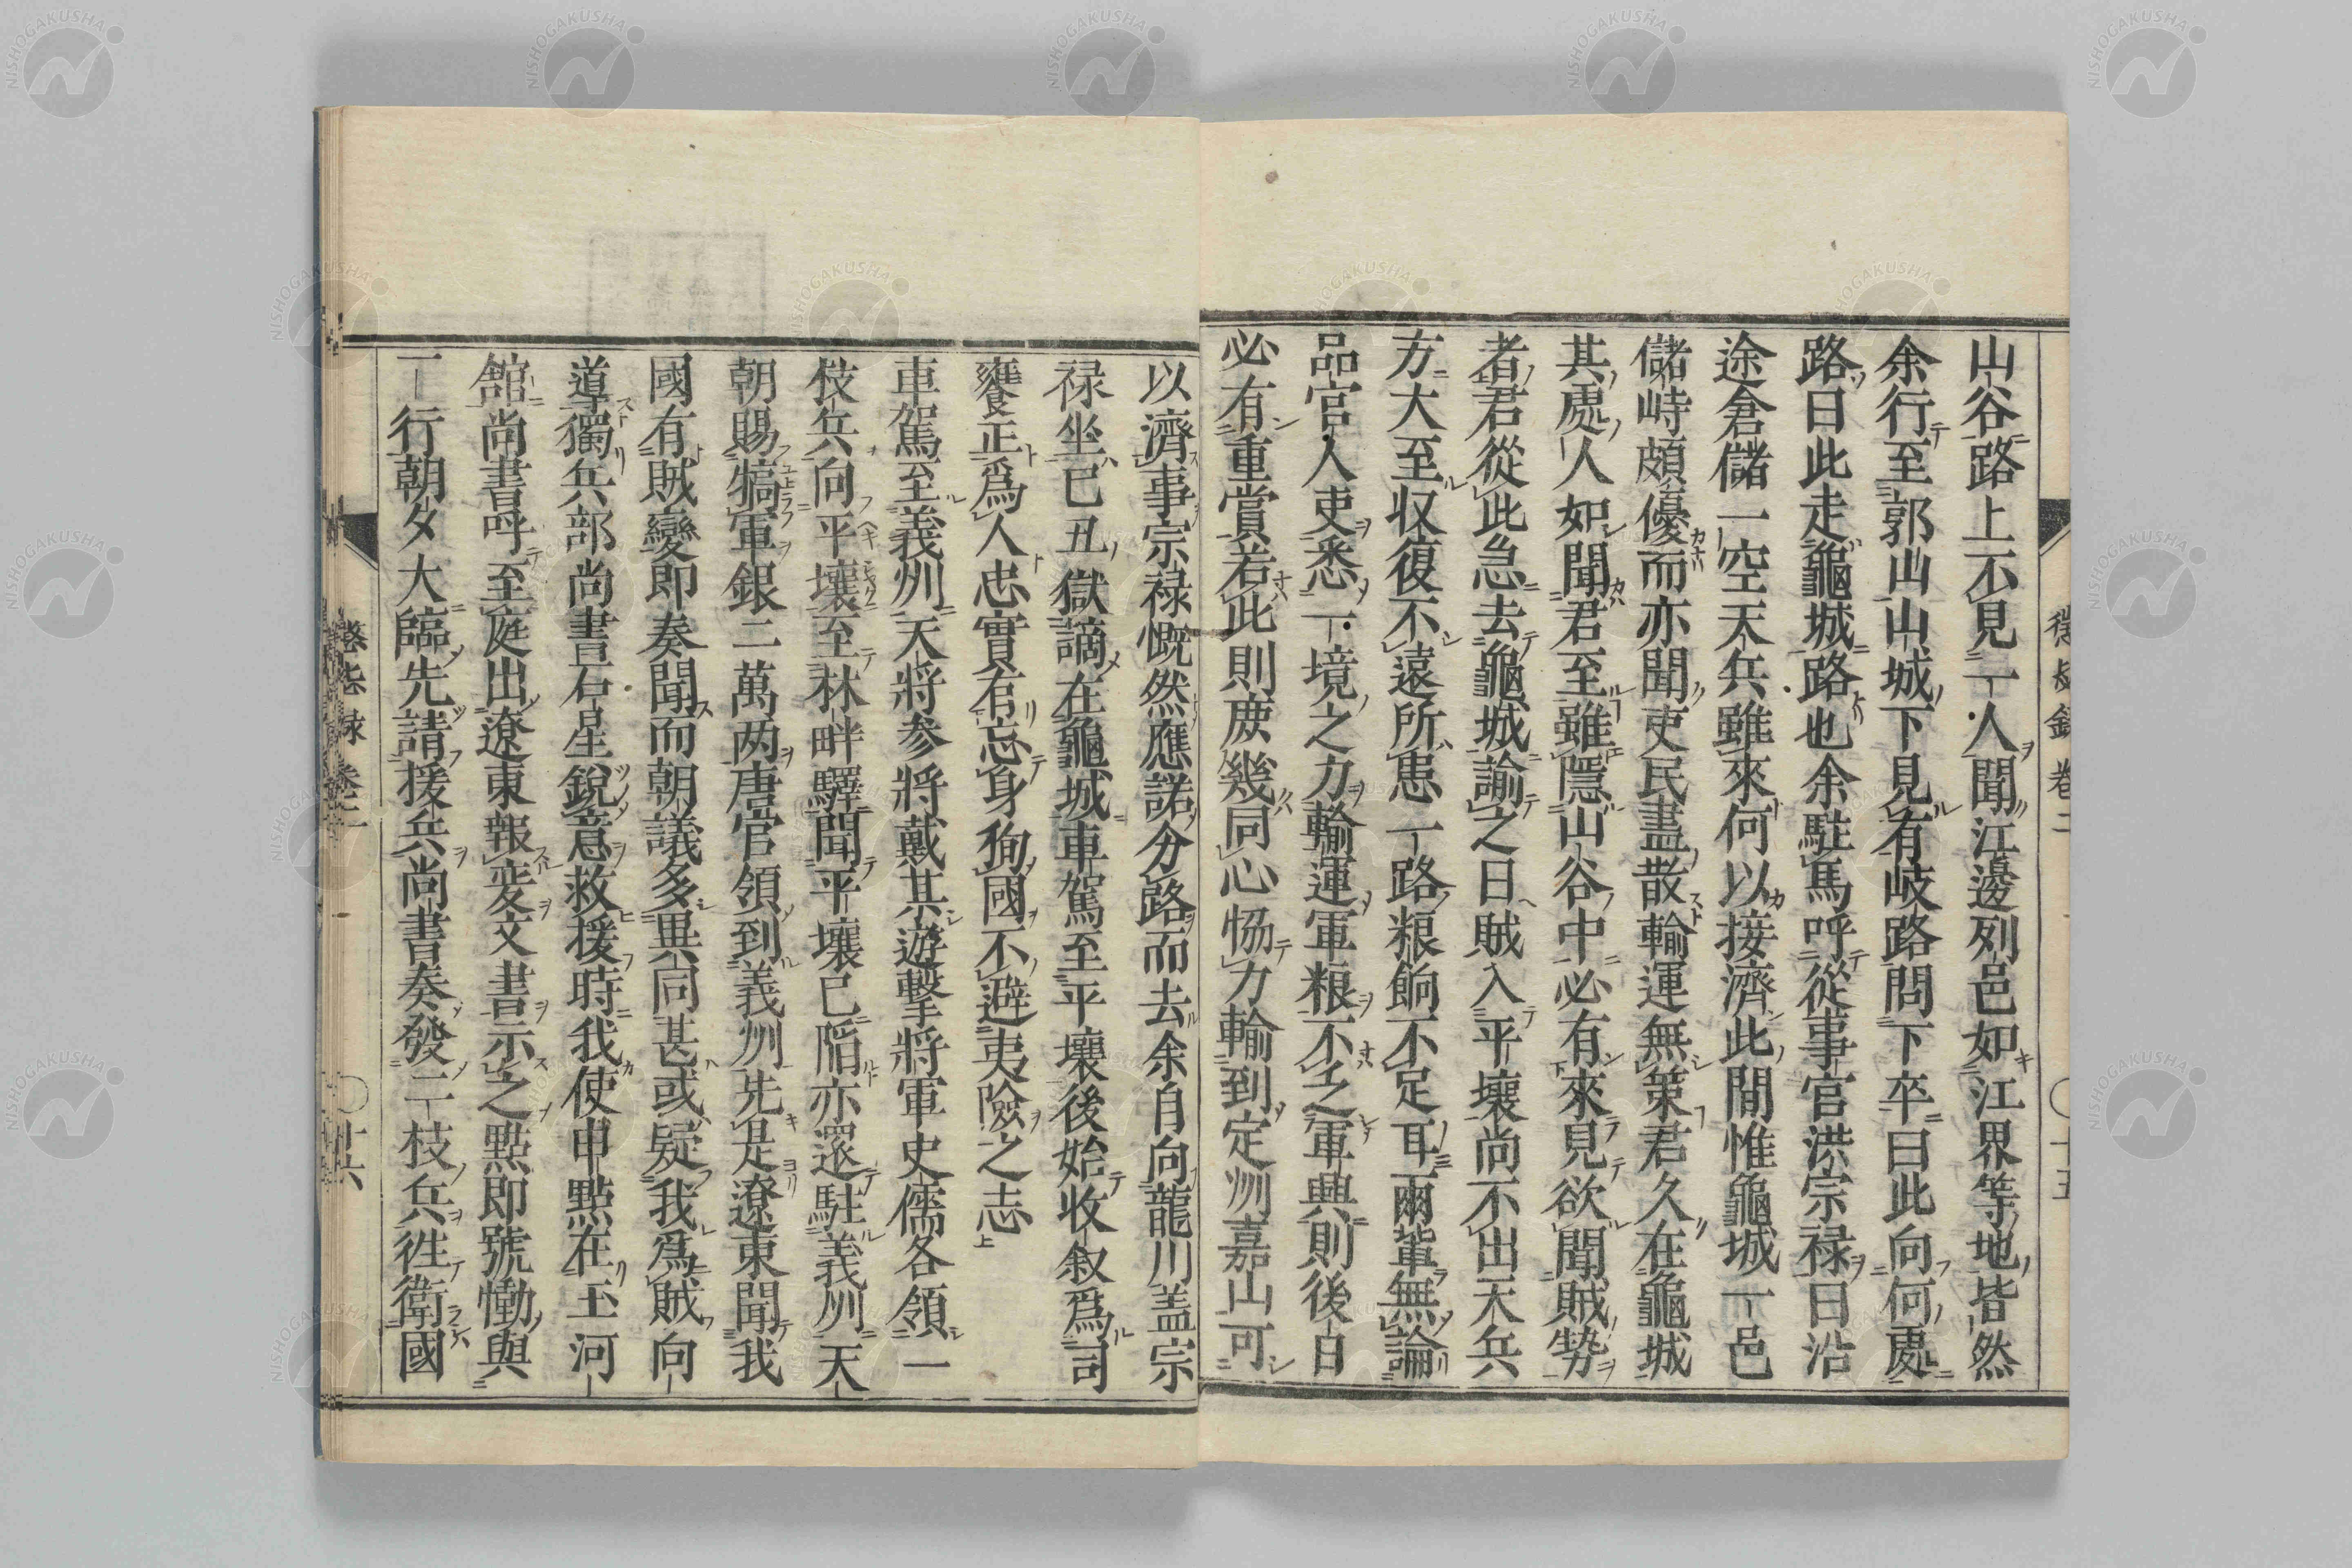 山谷路上不見一人聞江邊列邑如江界等地皆然
余行至郭山山城下見有岐路問下卒曰此向何處
路曰此走龜城路也余駐馬呼從事官洪宗禄曰沿
途倉儲一空天兵雖來何以接濟此間惟龜城一邑
儲峙頗優而亦聞吏民盡散輸運無策君久在龜城
其處人如聞君至雖隱山谷中必有來見欲聞賊勢
者君從此急去龜城諭之曰賊入平壤尚不出天兵
方大至収復不遠所患一路粮餉不足耳爾輩無論
品官人吏悉一境之力輸運軍粮不乏軍興則後日
必有重賞若此則庻幾同心恊力輸到定州嘉山可
以濟事宗禄慨然應諾分路而去余自向龍川盖宗
禄坐己丑獄謫在龜城車駕至平壤後始收叙爲司
饔正爲人忠實有忘身狥國不避夷險之志
車駕至義州天將参將戴其遊擊將軍史儒各領一
枝兵向平壤至林畔驛聞平壤已陷亦還駐義州天
朝賜犒軍銀二萬两唐官領到義州先是遼東聞我
國有賊變即奏聞而朝議多異同甚或疑我爲賊向
道獨兵部尚書石星銳意救援時我使申點在玉河
舘尚書呼至庭出遼東報変文書示之點即號慟與
一行朝夕大臨先請援兵尚書奏發二枝兵徃衛國
懲毖録 卷二
十五
懲毖録 卷二
十六
NISHOGAKUSHA